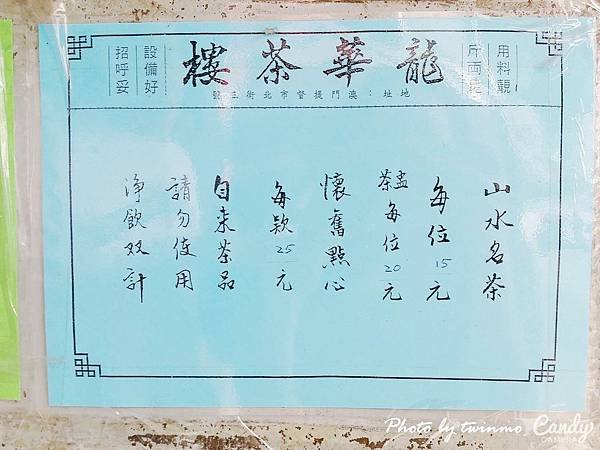 用料靚
斤両足
龍華茶樓
設備好
招呼妥
地址：澳門提督市北街三號
山水名茶
每位15元
盅茶每位20元
懷舊點心
每款25元
自来茶品
請勿使用
淨飲双計
Photo by twinmo
Candy
CAMERA